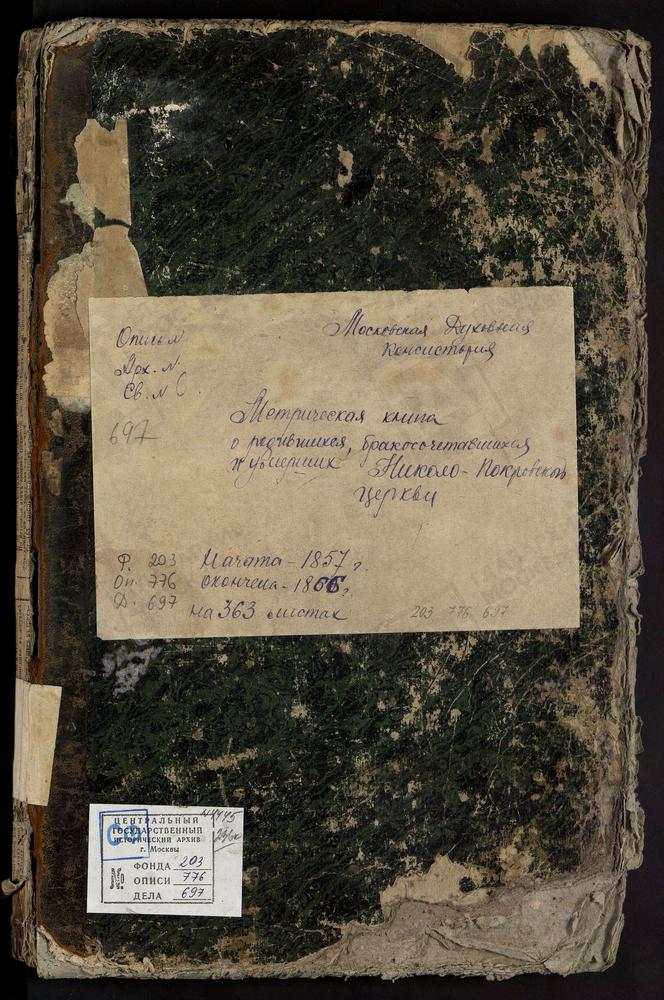 Опись №
Арх. №
Св. №
697
Московская Духовная
Консистория
Метрическая книга
о родившихся, бракосочетавшихся
и умерших Николо-Покровской
церкви
Ф. 203
Оп. 776
Д. 697
Начата - 1857 г.
окончена - 1866 г.
на 363 листах
203 776 697
ЦЕНТРАЛЬНЫЙ
ГОСУДАРСТВЕННЫЙ
ИСТОРИЧЕСКИЙ АРХИВ
г. Москвы
№
ФОНДА 203
ОПИСИ 776
ДЕЛА 697